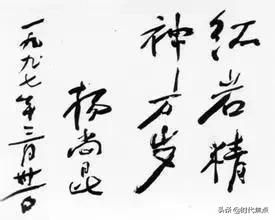 红岩精
神万岁
杨尚昆
一九九七年三月廿二日
头条@时代焦点